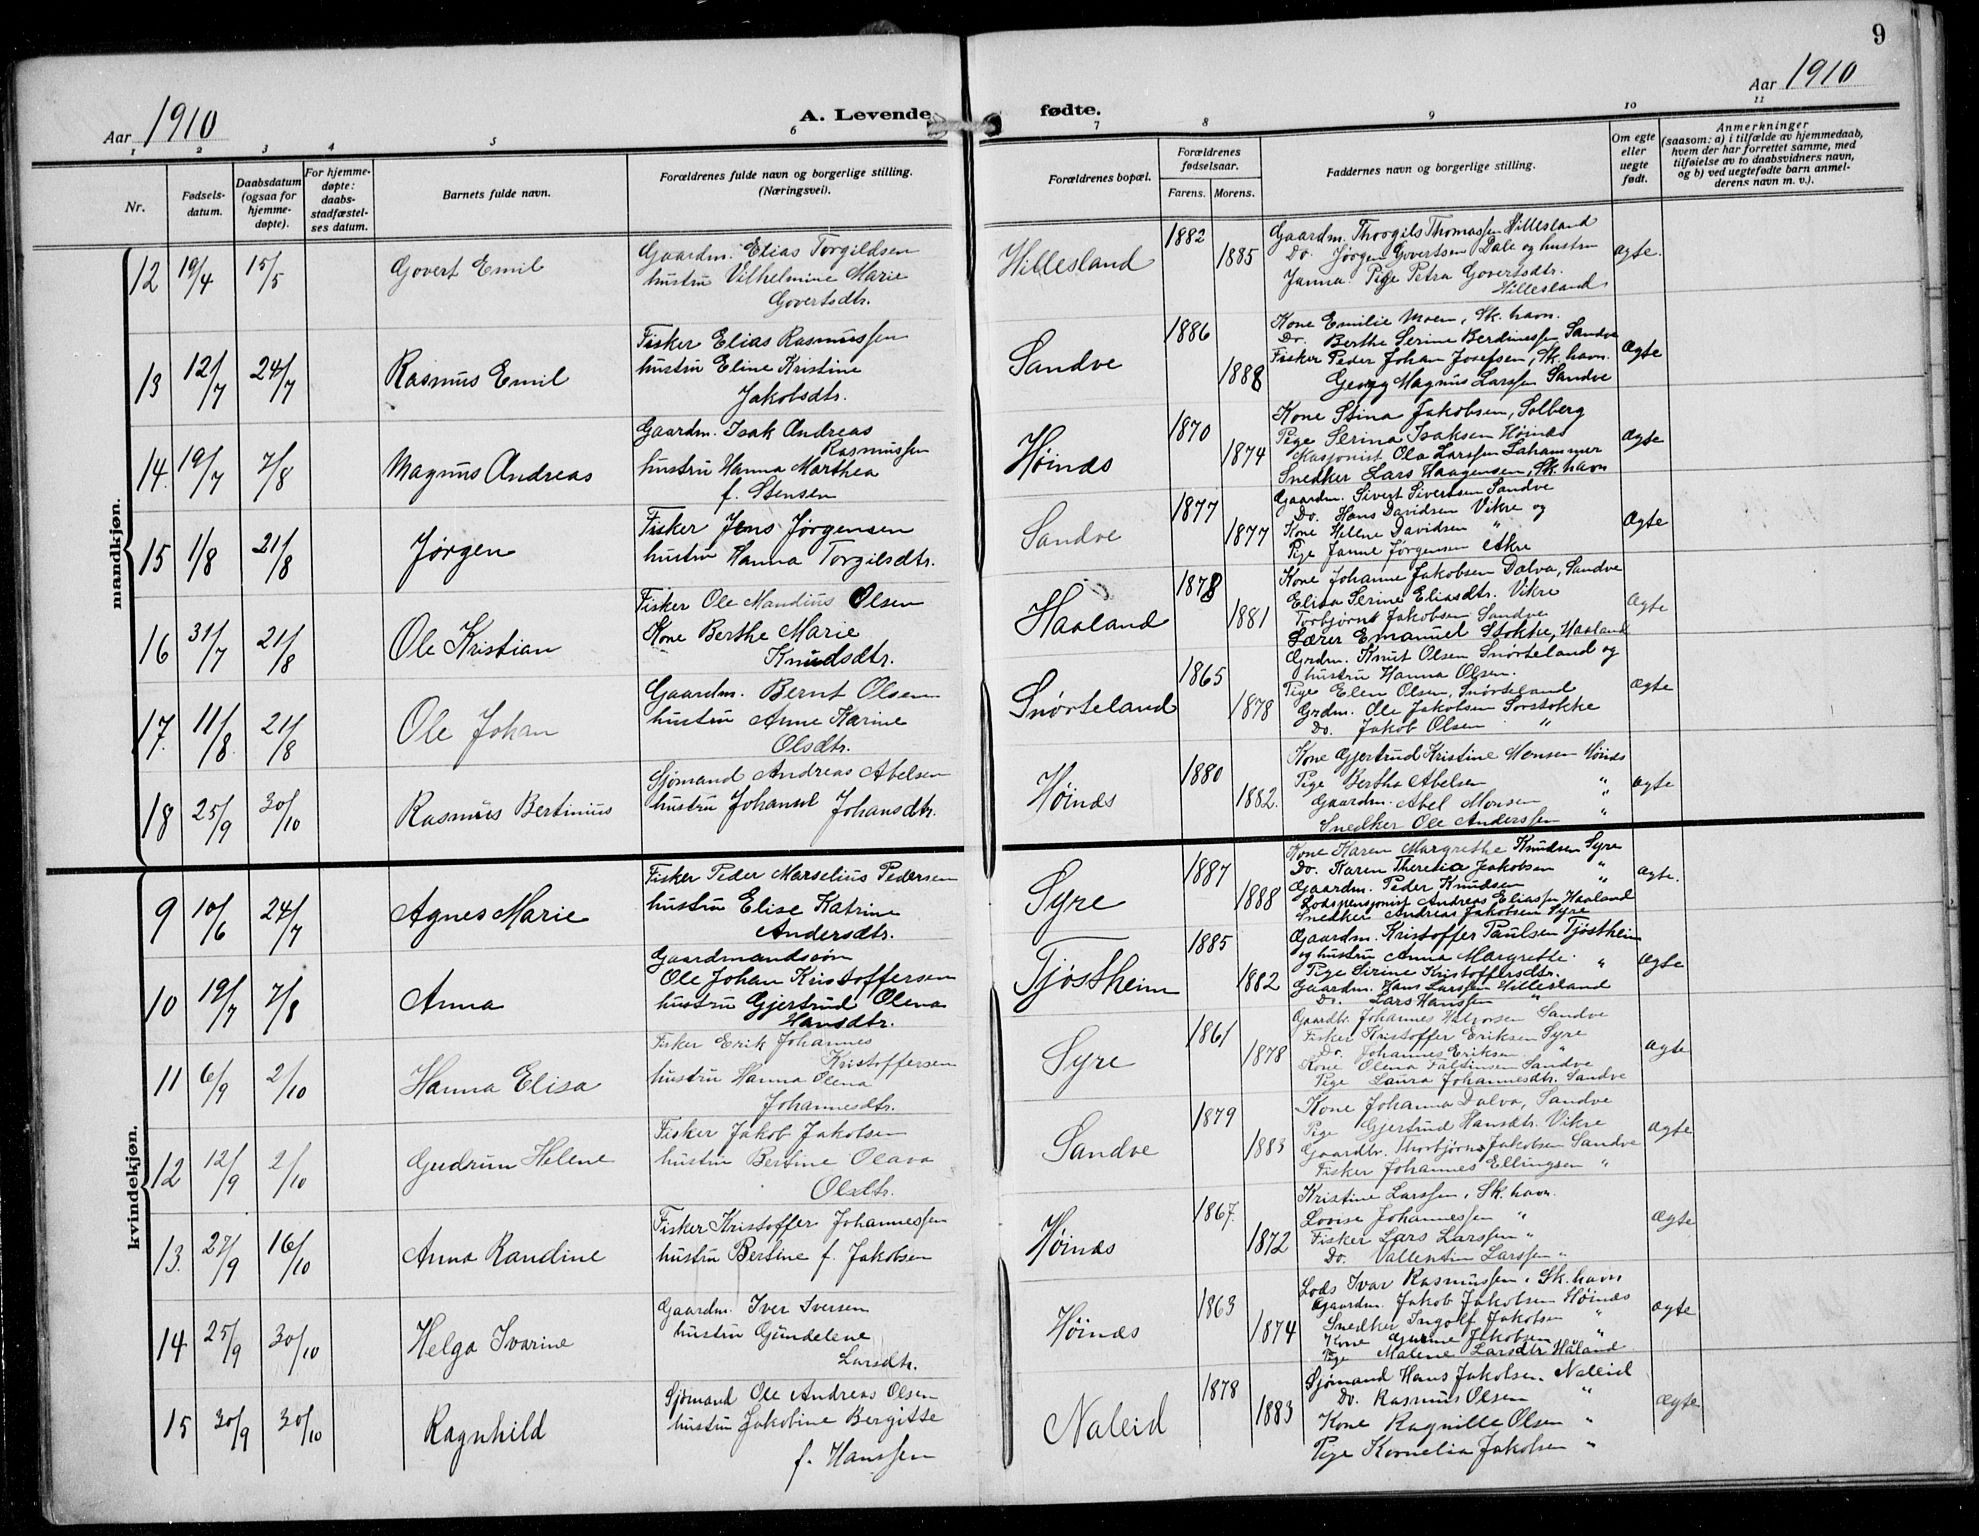 9
Aar 1910
A. Levende fødte.
Aar 1910
1 2 3 4 5 6 7 8 9 10 11
Nr.
Fødsels-
datum.
Daabsdatum
(ogsaa for
hjemme-
døpte).
For hjemme-
døpte:
daabs-
stadfæstel-
ses datum.
Barnets fulde navn.
Forældrenes fulde navn og borgerlige stilling.
(Næringsvei).
Forældrenes bopæl.
Forældrenes
fødselsaar.
Farens. Morens.
Faddernes navn og borgerlige stilling.
Om egte
eller
uegte
født.
Anmerkninger
(saasom: a) i tilfælde av hjemmedaab,
hvem der har forrettet samme, med
tilføielse av to daabsvidners navn,
og b) ved uegtefødte barn anmel-
derens navn m. v.).
mandkjøn.
12 19/4 15/5 Govert Emil
Gaardm. Elias Torgildsen
hustru Vilhelmine Marie
Govertsdtr.
Hillesland 1882 1885
Gaardm. Thorgils Thomassen Hillesland
Do. Jørgen Govertsen Dale og hustru
Janna. Pige Petra Govertsdtr.
Hillesland
ægte.
13 12/7 24/7 Rasmus Emil
Fisker Elias Rasmussen
hustru Eline Kristine
Jakobsdtr.
Sandve 1886 1888
Kone Emilie Moen, Sk. havn.
Do. Berthe Serine Berdinessen Sandve
Fisker Peder Johan Josefsen, Sk. havn.
Georg Magnus Larssen Sandve
Ægte
14. 19/7 7/8 Magnus Andreas
Gaardm. Isak Andreas
Rasmussen
hustru Hanna Marthea
f. Stensen
Høinæs 1870 1874
Kone Stina Jakobsen, Solberg
Pige Serina Isaksen Høinæs
Ola Larssen Lahammer
Snedker Lars Haagensen, Sk. havn
Ægte
15 1/8 21/8 Jørgen
Fisker Jens Jørgensen
hustru Hanna Torgilsdtr.
Sandve 1877 1877
Gaardm. Sivert Sivertsen Sandve
Do. Hans Davidsen Vikre og
Kone Helene Davidsen "
Pige Janne Jørgensen Akre
Ægte
16 31/7 21/8 Ole Kristian
Fisker Ole Mandius Olsen
Kone Berthe Marie
Knudsdtr.
Haaland 1878 1881
Kone Johanne Jakobsen Dalva, Sandve
Elisa Serine Eliasdtr. Vikre
Torbjørn Jakobsen Sandve
Lærer Emanuel Stokke, Haaland
Ægte
17. 11/8 21/8 Ole Johan
Gaardm. Bernt Olsen
hustru Anne Karine
Olsdtr.
Snørteland 1865 1878
Grdm. Knut Olsen Snørteland og
hustru Hanna Olsen.
Pige Elen Olsen, Snørteland
Grdm. Ole Jakobsen Sørstokke
Do. Jakob Olsen "
Ægte
18 25/9 30/10 Rasmus Bertinius
Sjømand Andreas Abelsen
hustru Johanne Johansdtr.
Høinæs 1880 1882.
Kone Gjertrud Kristine Monsen Høinæs
Pige Bertha Abelsen "
Gaardm. Abel Monsen "
Snedker Ole Anderssen "
ægte
kvindekjøn.
9 10/6 24/7 Agnes Marie
Fisker Peder Marselius Pedersen
hustru Elise Katrine
Andersdtr.
Syre 1887 1888
Kone Karen Margrethe Knudsen Syre
Do. Karen Theresia Jakobsen "
Gaardm. Peder Knudsen "
Lodspensjonist Andreas Eliassen Haaland
Snedker Andreas Jakobsen Syre
ægte.
10 19/7 7/8 Anna
Gaardmandssøn
Ole Johan Kristoffersen
hustru Gjertrud Olena
Hansdtr.
Tjøstheim 1885 1882
Gaardm. Kristoffer Paulsen Tjøstheim
og hustru Anna Margrethe.
Pige Serine Kristoffersdtr. "
Gaardm. Hans Larssen Hillesland
Do. Lars Hanssen "
ægte
11 6/9 2/10 Hanna Elisa
Fisker Erik Johannes
Kristoffersen
hustru Hanna Olena
Johannesdtr.
Syre 1861 1878
Gaardbr. Johannes Halvorsen Sandve
Fisker Kristoffer Eriksen Syre
Do. Johannes Eriksen "
Kone Olena Faltinsen Sandve
Pige Laura Johannesdtr. Sandve
ægte
12 12/9 2/10 Gudrun Helene
Fisker Jakob Jakobsen
hustru Bertine Olava
Olsdtr.
Sandve 1879 1883
Kone Johanna Dalva, Sandve
Pige Gjertrud Hansdtr. Vikre
Gaardbr. Thorbjørn Jakobsen Sandve
Fisker Johannes Ellingsen "
ægte
13. 27/9 16/10 Anna Randine
Fisker Kristoffer Johannessen
hustru Bertine f. Jakobsen
Høinæs 1867. 1872
Kristine Larssen, Sk. havn.
Lovise Johannessen "
Fisker Lars Larssen "
Do. Vallentin Larssen "
Ægte
14 25/9 30/10 Helga Ivarine
Gaardm. Iver Iversen
hustru Gundelene
Larsdtr.
Høinæs 1863 1874
Lods Ivar Rasmussen, Sk. havn
Gaardm. Jakob Jakobsen Høinæs
Snedker Ingolf Jakobsen "
Kone Gurine Jakobsen "
Pige Malene Larsdtr Haland
ægte
15 30/9 30/10 Ragnhild
Sjømand Ole Andreas Olsen
hustru Jakobine Bergitte
f. Hanssen
Naleid 1878 1883
Sjømand Hans Jakobsen Naleid
Do. Rasmus Olsen "
Kone Ragnille Olsen "
Pige Kornelia Jakobsen "
Ægte